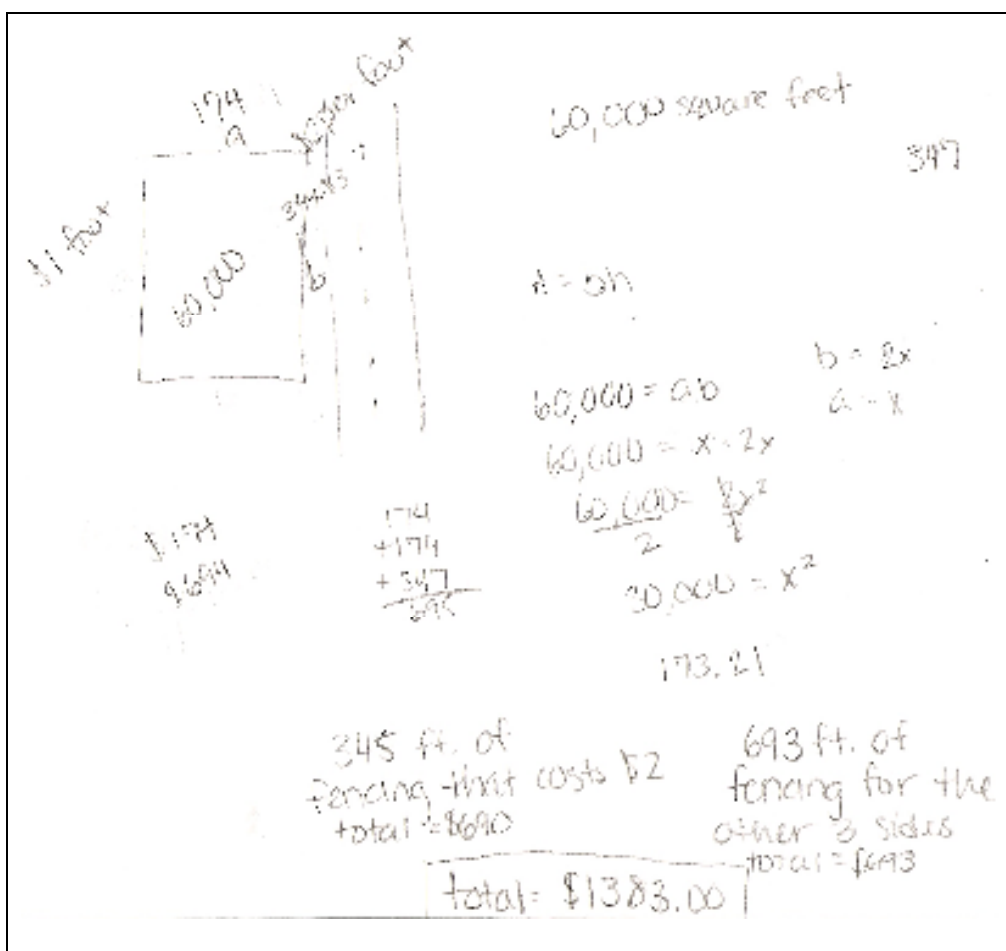 174
a
$2 per foot
$1 foot
344.83
60,000
b
60,000 square feet
347
b = 2x
a = x
60,000 = ab
60,000 = x · 2x
60,000 = 2x²
2
30,000 = x²
173.21
$174
$694
174
+174
+347
695
345 ft. of
fencing that costs $2
total = $690
693 ft. of
fencing for the
other 3 sides
total = $693
total = $1383.00